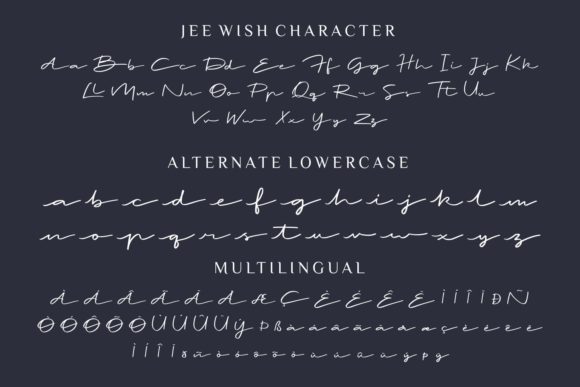 JEE WISH CHARACTER
Aa Bb Cc Dd Ee Ff Gg Hh Ii Jj Kk
Ll Mm Nn Oo Pp Qq Rr Ss Tt Uu
Vv Ww Xx Yy Zz
ALTERNATE LOWERCASE
a b c d e f g h i j k l m
n o p q r s t u v w x y z
MULTILINGUAL
À Á Â Ã Ä Å Æ Ç È É Ê Ë Ì Í Î Ï Ð Ñ
Ò Ó Ô Õ Ö Ù Ú Û Ü Ý Þ ß à á â ã ä å æ ç è é ê ë
ì í î ï ð ñ ò ó ô õ ö ù ú û ü ý þ ÿ